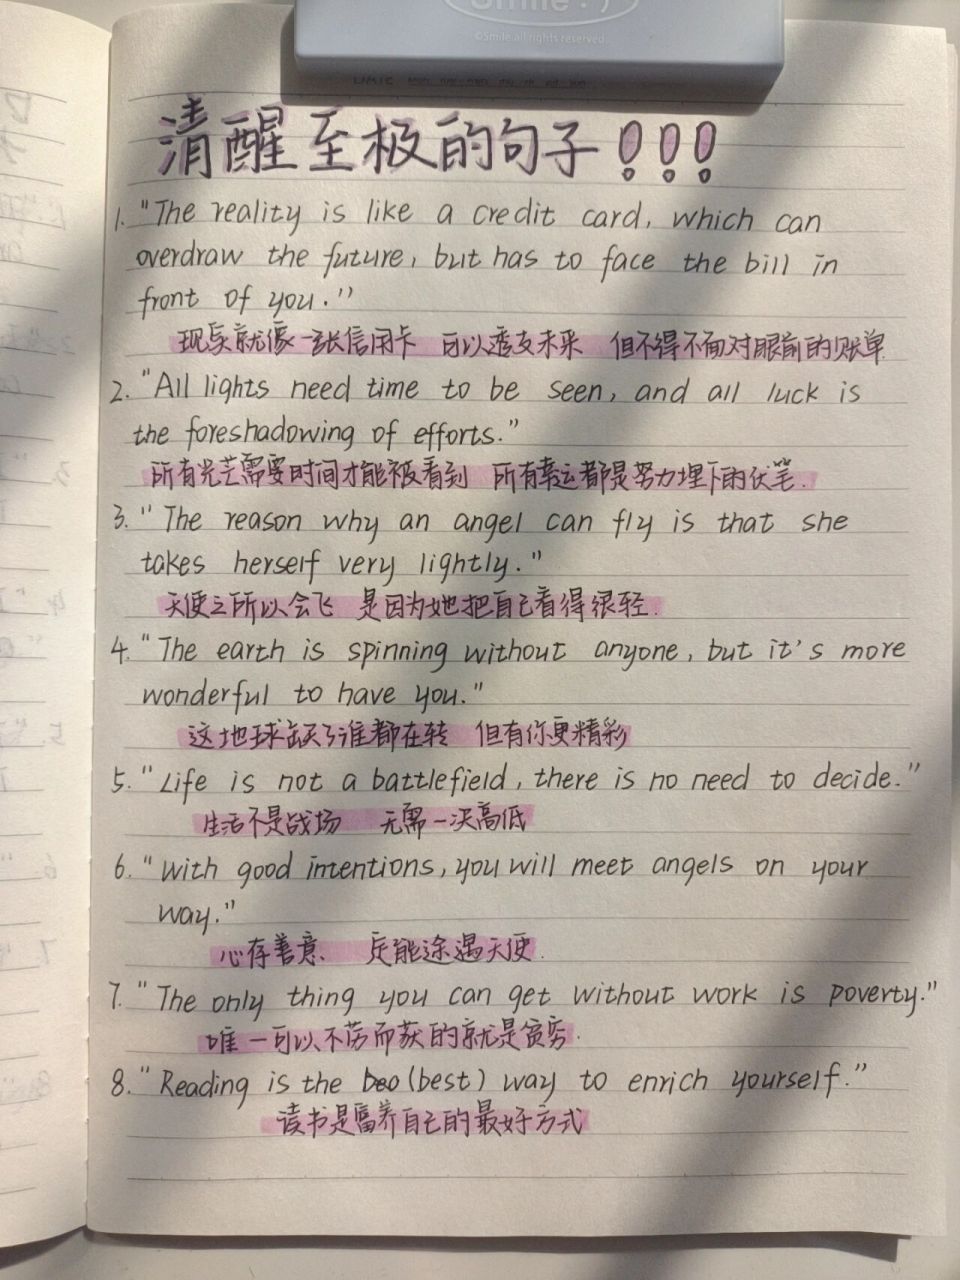 Smile :)
©Smile all rights reserved
DATE
清醒至极的句子!!!
1. "The reality is like a credit card, which can
overdraw the future, but has to face the bill in
front of you."
现实就像一张信用卡 可以透支未来 但不得不面对眼前的账单
2. "All lights need time to be seen, and all luck is
the foreshadowing of efforts."
所有光芒需要时间才能被看到 所有幸运都是努力埋下的伏笔.
3. "The reason why an angel can fly is that she
takes herself very lightly."
天使之所以会飞 是因为她把自己看得很轻.
4. "The earth is spinning without anyone, but it's more
wonderful to have you."
这地球缺了谁都在转 但有你更精彩
5. "Life is not a battlefield, there is no need to decide."
生活不是战场 无需一决高低
6. "With good intentions, you will meet angels on your
way."
心存善意 定能途遇天使.
7. "The only thing you can get without work is poverty."
唯一可以不劳而获的就是贫穷.
8. "Reading is the beo (best) way to enrich yourself."
读书是富养自己的最好方式